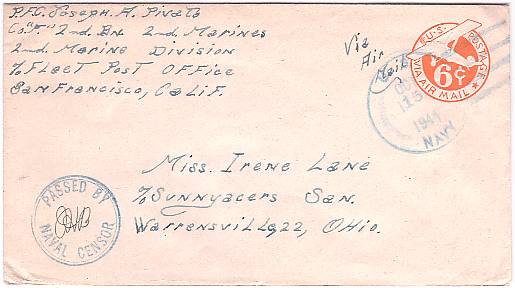 P.F.C. Joseph. A. Pivato
Co."F." 2nd. Bn 2nd. Marines
2nd. Marine Division
℅ Fleet Post Office
San Francisco, Calif.
Via
Air
Mail
U.S. POSTAGE
6¢
VIA AIR MAIL
1944
NAVY
Miss. Irene Lane
℅ Sunnyacers San.
Warrensville, 22, Ohio.
PASSED BY
NAVAL CENSOR